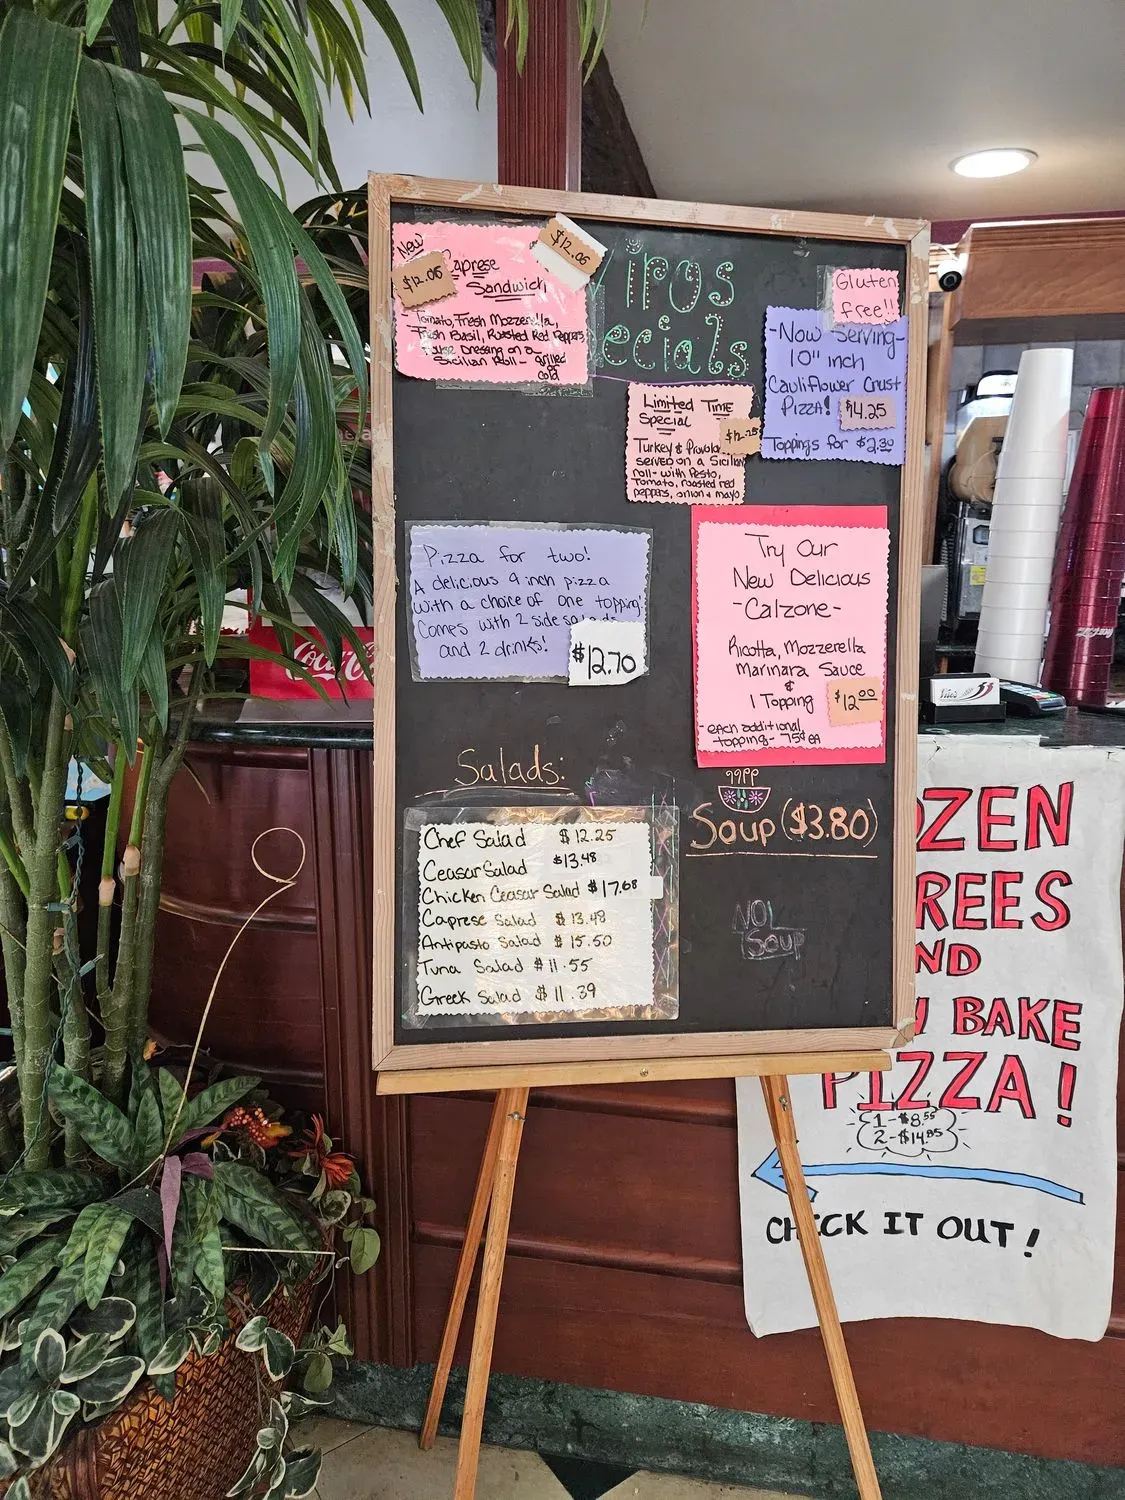 New
$12.05
$12.05
Caprese
Sandwich
Tomato, Fresh Mozzerella,
Fresh Basil, Roasted Red Peppers
House Dressing on a
Sicilian Roll - grilled
cold
Viros
ecials
Gluten
free!!
-Now Serving-
10" inch
Cauliflower Crust
Pizza! $14.25
Toppings for $2.30
Limited Time
Special
Turkey & Provolo
served on a Sicilian
roll - with Pesto,
Tomato, roasted red
peppers, onion & mayo
Pizza for two!
A delicious 9 inch pizza
with a choice of one topping!
Comes with 2 side salads
and 2 drinks!
$12.70
Try Our
New Delicious
-Calzone-
Ricotta, Mozzerella
Marinara Sauce
&
1 Topping
$12.00
-each additional
topping- 75¢ ea
Salads:
Chef Salad $12.25
Ceasar Salad $13.48
Chicken Ceasar Salad $17.68
Caprese Salad $13.48
Antipasto Salad $15.50
Tuna Salad $11.55
Greek Salad $11.39
Soup ($3.80)
Soup
Coca-Cola
OZEN
REES
ND
BAKE
PIZZA!
1-$8.55
2-$14.85
CHECK IT OUT!